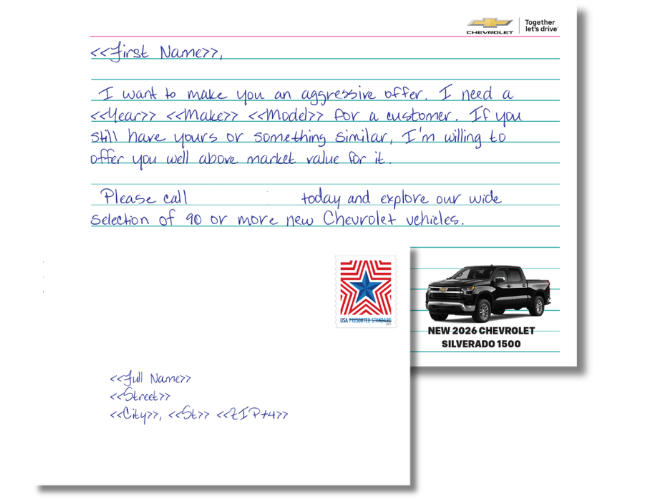 CHEVROLET
Together
let's drive
<<First Name>>,
I want to make you an aggressive offer. I need a
<<Year>> <<Make>> <<Model>> for a customer. If you
still have yours or something similar, I'm willing to
offer you well above market value for it.
Please call today and explore our wide
selection of 90 or more new Chevrolet vehicles.
USA PRESORTED STANDARD
NEW 2026 CHEVROLET
SILVERADO 1500
<<Full Name>>
<<Street>>
<<City>>, <<St>> <<ZIP+4>>